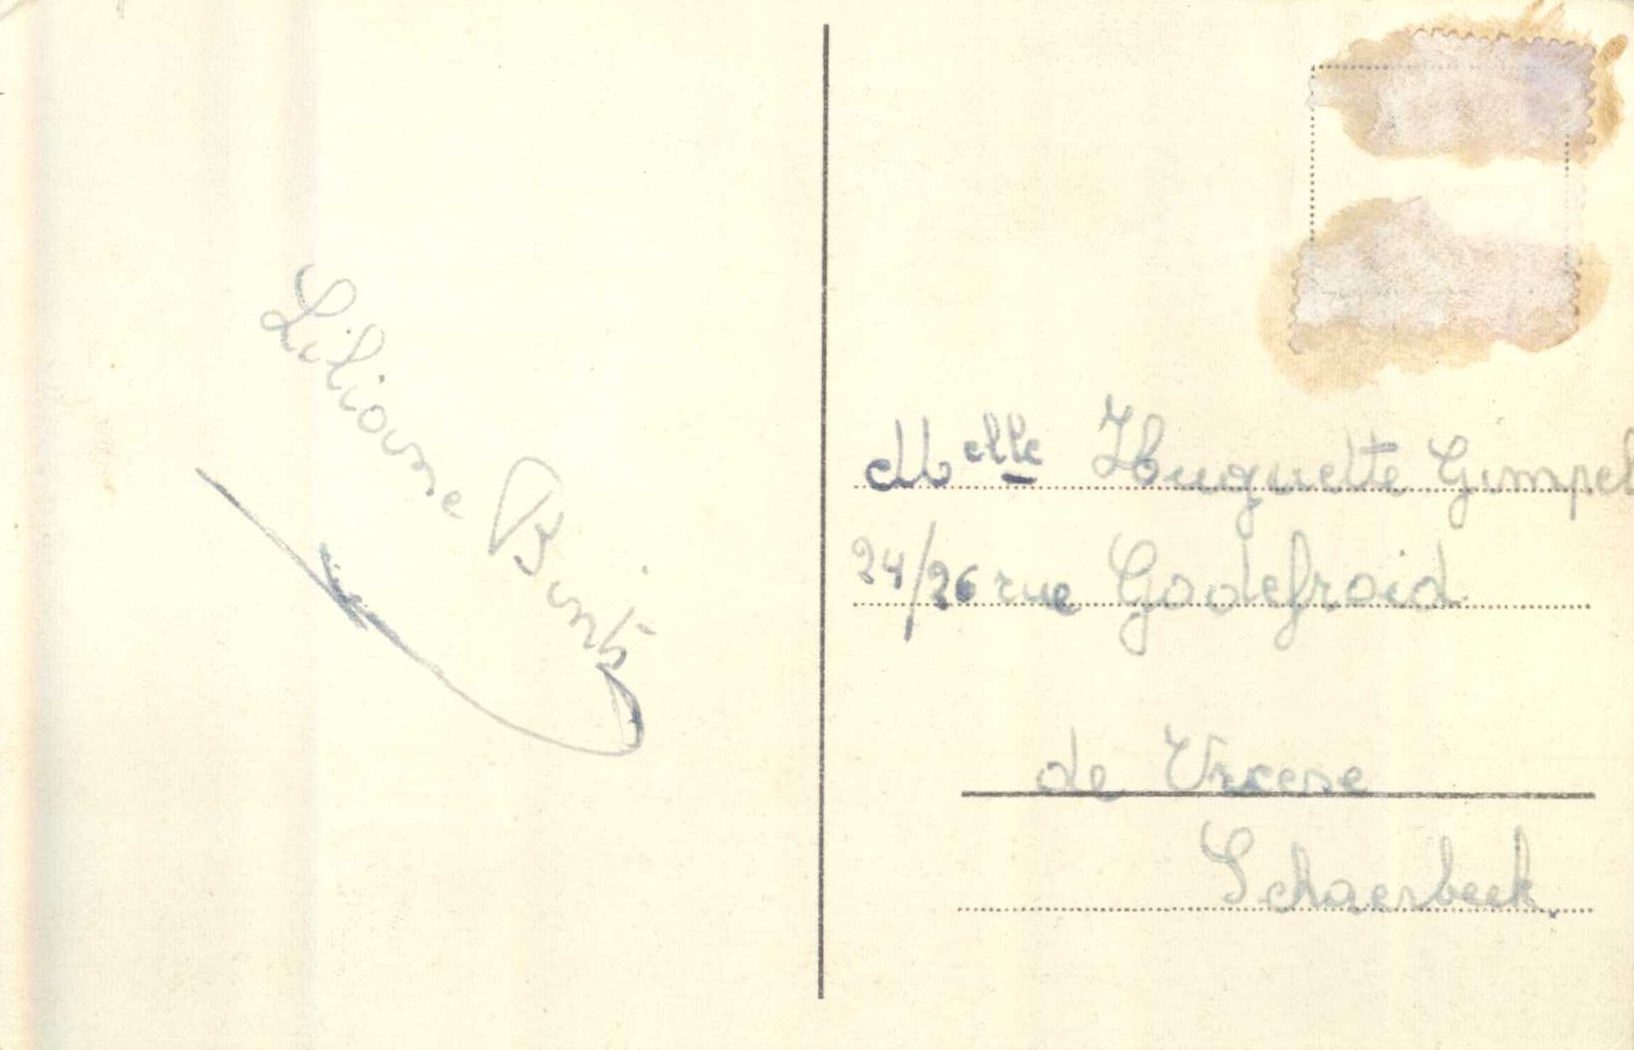 Liliane
Melle Huguette Gimpel
24/26 rue Godefroid
de Vreese
Schaerbeek.